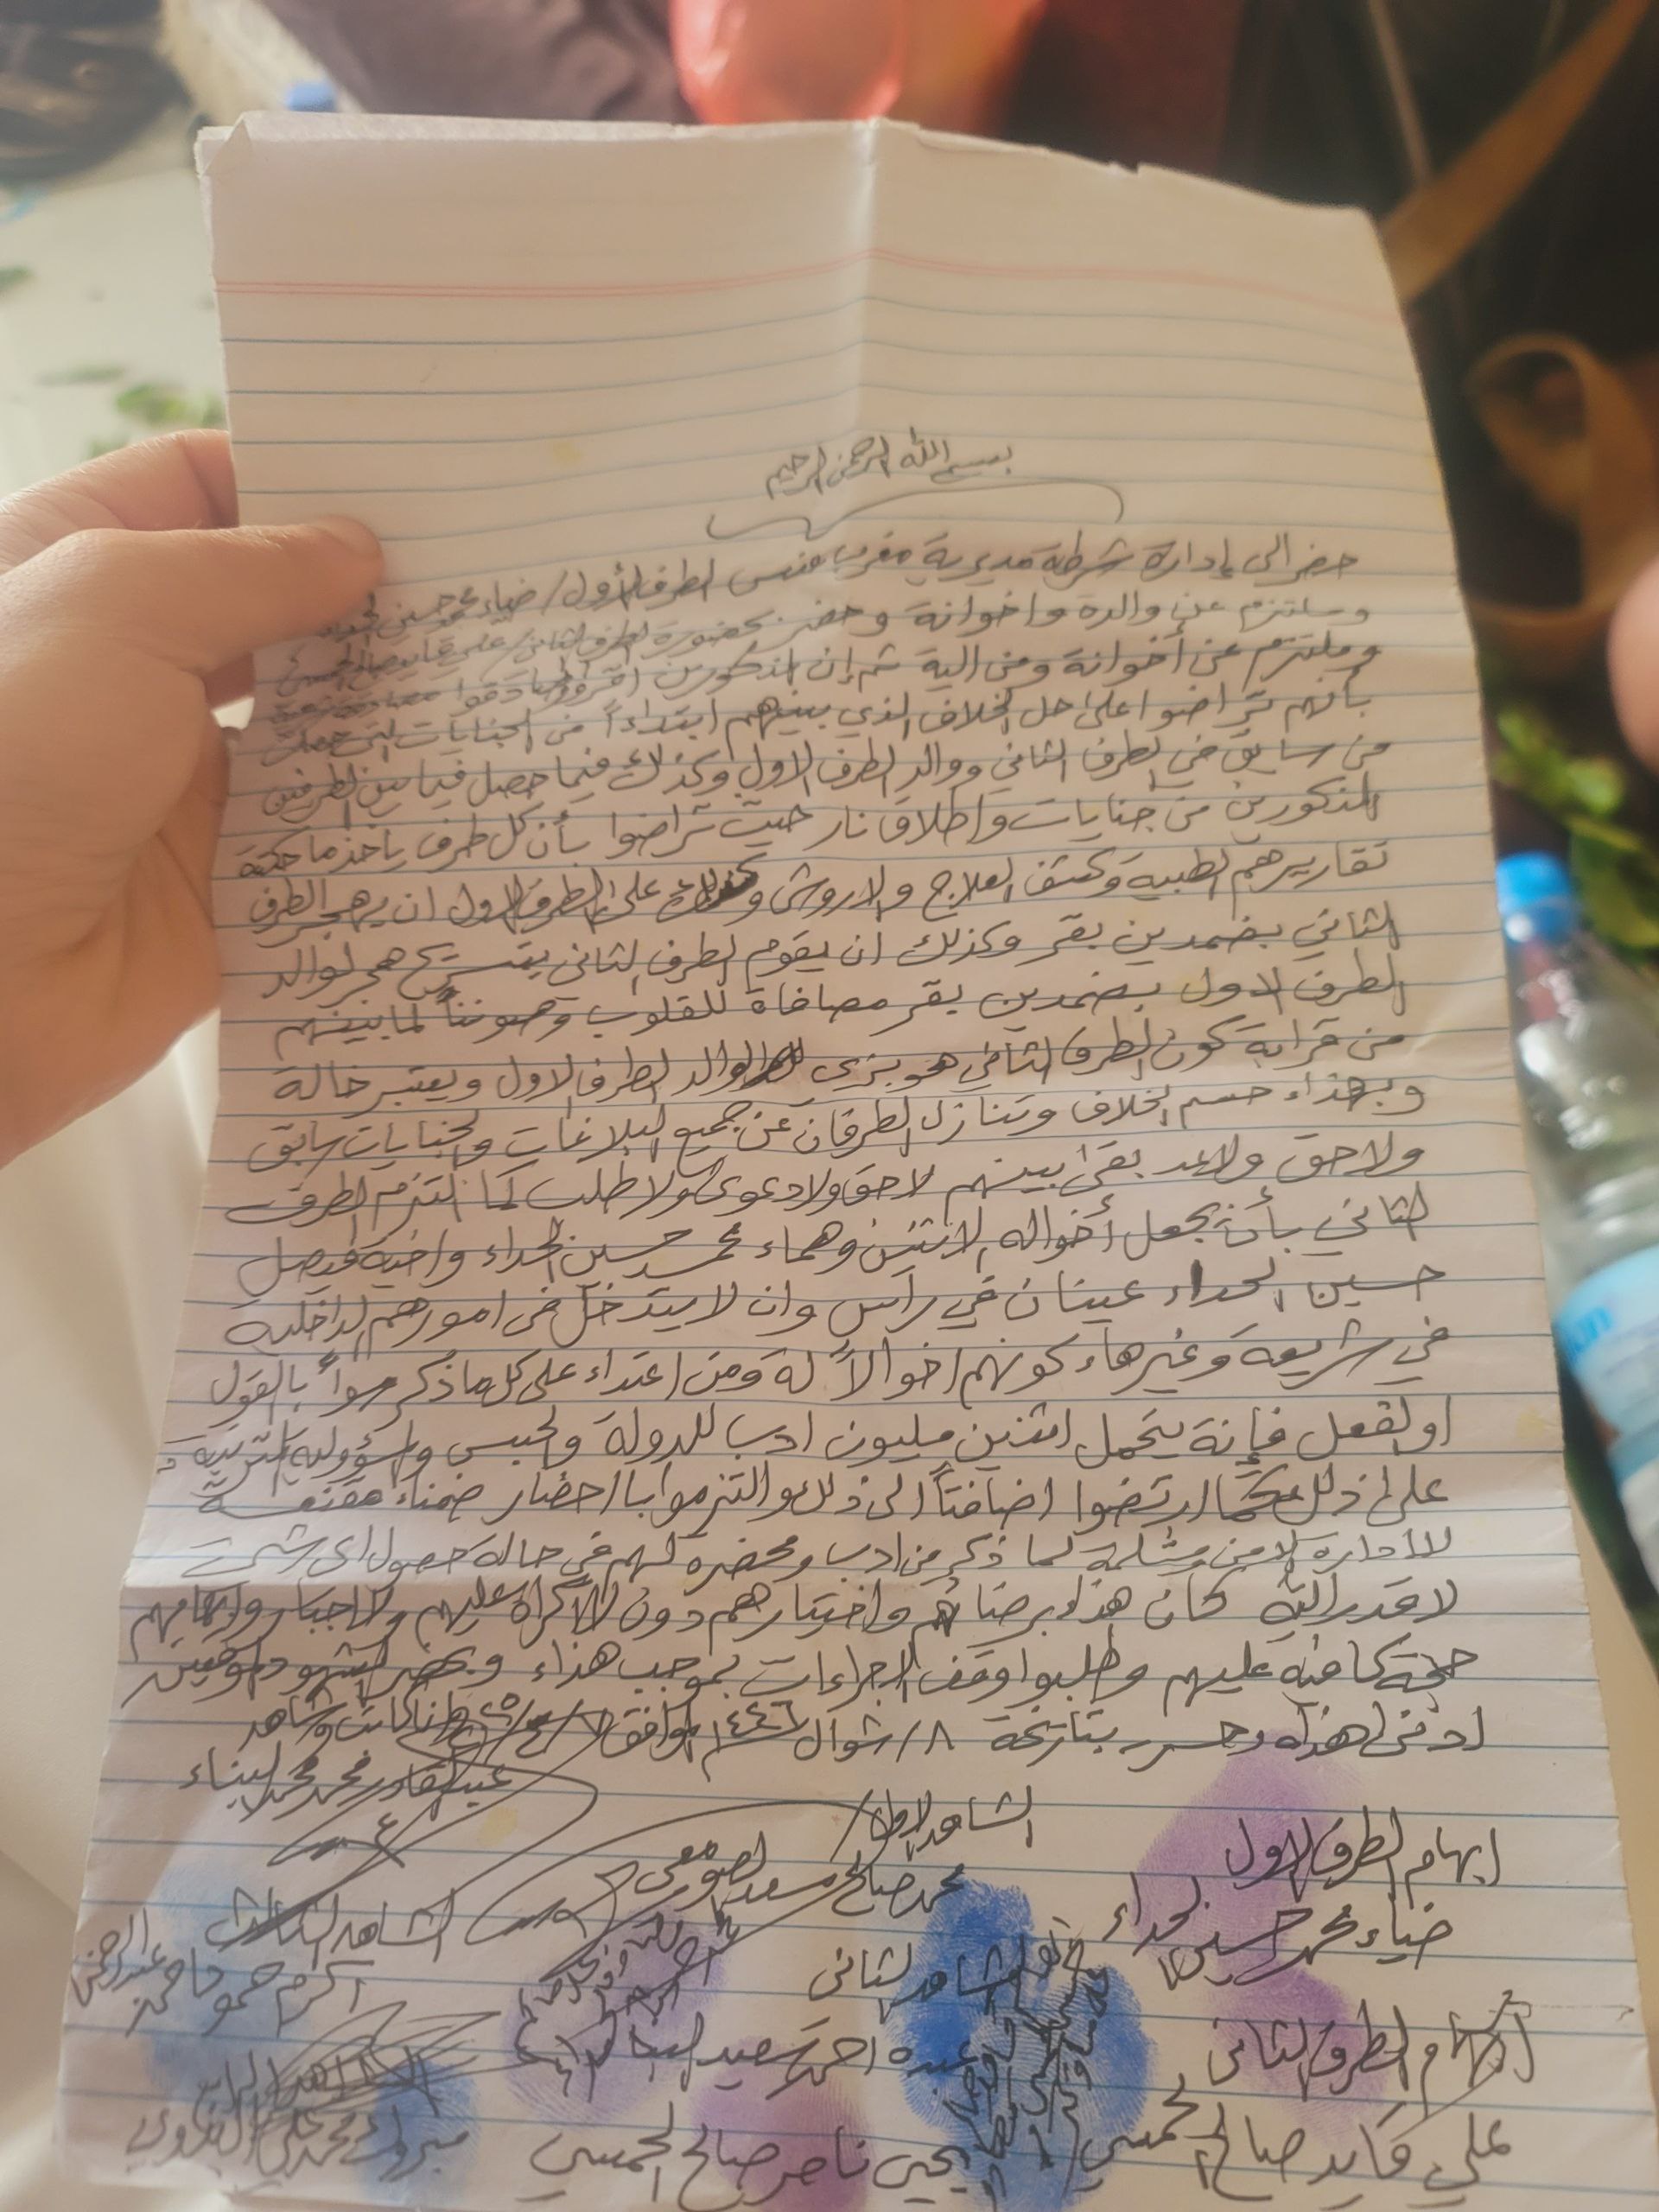 بسم الله الرحمن الرحيم
حضر الى إدارة شرطة مديرية مغرب عنس الطرف الأول/ ضياء محمد حسين
وملتزم عن والدة واخوانة وحضر بحضورة الطرف الثاني/ علي قايد صالح الحمسي
وملتزم عن أخوانة ومن الية ثم إن المذكورين اقروا
بأنهم تراضوا على حل الخلاف الذي بينهم ابتداءاً من الجنايات التي حصلت
من سابق في الطرف الثاني ووالد الطرف الاول وكذلك فيما حصل فيما بين الطرفين
المذكورين من جنايات واطلاق نار حيث تراضوا بأن كل طرف ياخذ ما حكته
تقاريرهم الطبية وكشف العلاج والاروش وكذلك على الطرف الاول ان يهجر الطرف
الثاني بضمدين بقر وكذلك ان يقوم الطرف الثاني هجر لوالد
الطرف الاول بضمدين بقر مصافاة للقلوب وصونناً لما بينهم
من قرابة كون الطرف الثاني هو بزي لوالد الطرف الاول ويعتبر خالة
وبهذاء حسم الخلاف وتنازل الطرفان عن جميع البلاغات والجنايات سابق
ولاحق ولاعد بقى بينهم لاحق ولادعوى ولا طلب كما التزم الطرف
الثاني بأن يجعل أخواله الاثنين وهماء محمد حسين الحداء واخية فيصل
حسين الحداء عينان في راس وان لايتدخل في امورهم الداخلية
في شريعة وغيرهاء كونهم اخوالاً لة ومن اعتداء على كل ما ذكر سواً بالقول
او الفعل فإنة يتحمل اثنين مليون ادب للدولة والحبس والمسؤولية المترتبة
على ذلك كما ارتضوا اضافتاً الى ذلك والتزموا بااحضار ضمناء مقنعة
لاادارة الامن مسلمة لما ذكر من ادب ومحضرة لهم في حالة حصول اى شئ
لا قدر الله كان هذا برضائهم واختيارهم دون الاكراة عليهم ولا اجبار وابهامهم
حجة كافية عليهم وطلبوا وقف الاجراءات بموجب هذاء وبحضر الشهود الموقعين
ادنى هذا وحرر بتاريخة ٨/ شوال ١٤٤٦ الموافق
عبدالقادر محمد محمد البناء
الشاهد الاول/
ابهام الطرف الاول
محمد صالح مسعد
ضياء محمد حسين الحداء
الشاهد الثالث
اكرم حمود احمد عبدالرحمن
الشاهد الثاني
عبده احمد سعيد البناء
ابهام الطرف الثاني
علي قايد صالح الحمسي
يحيى ناصر صالح الحمسي
مبروك محمد علي